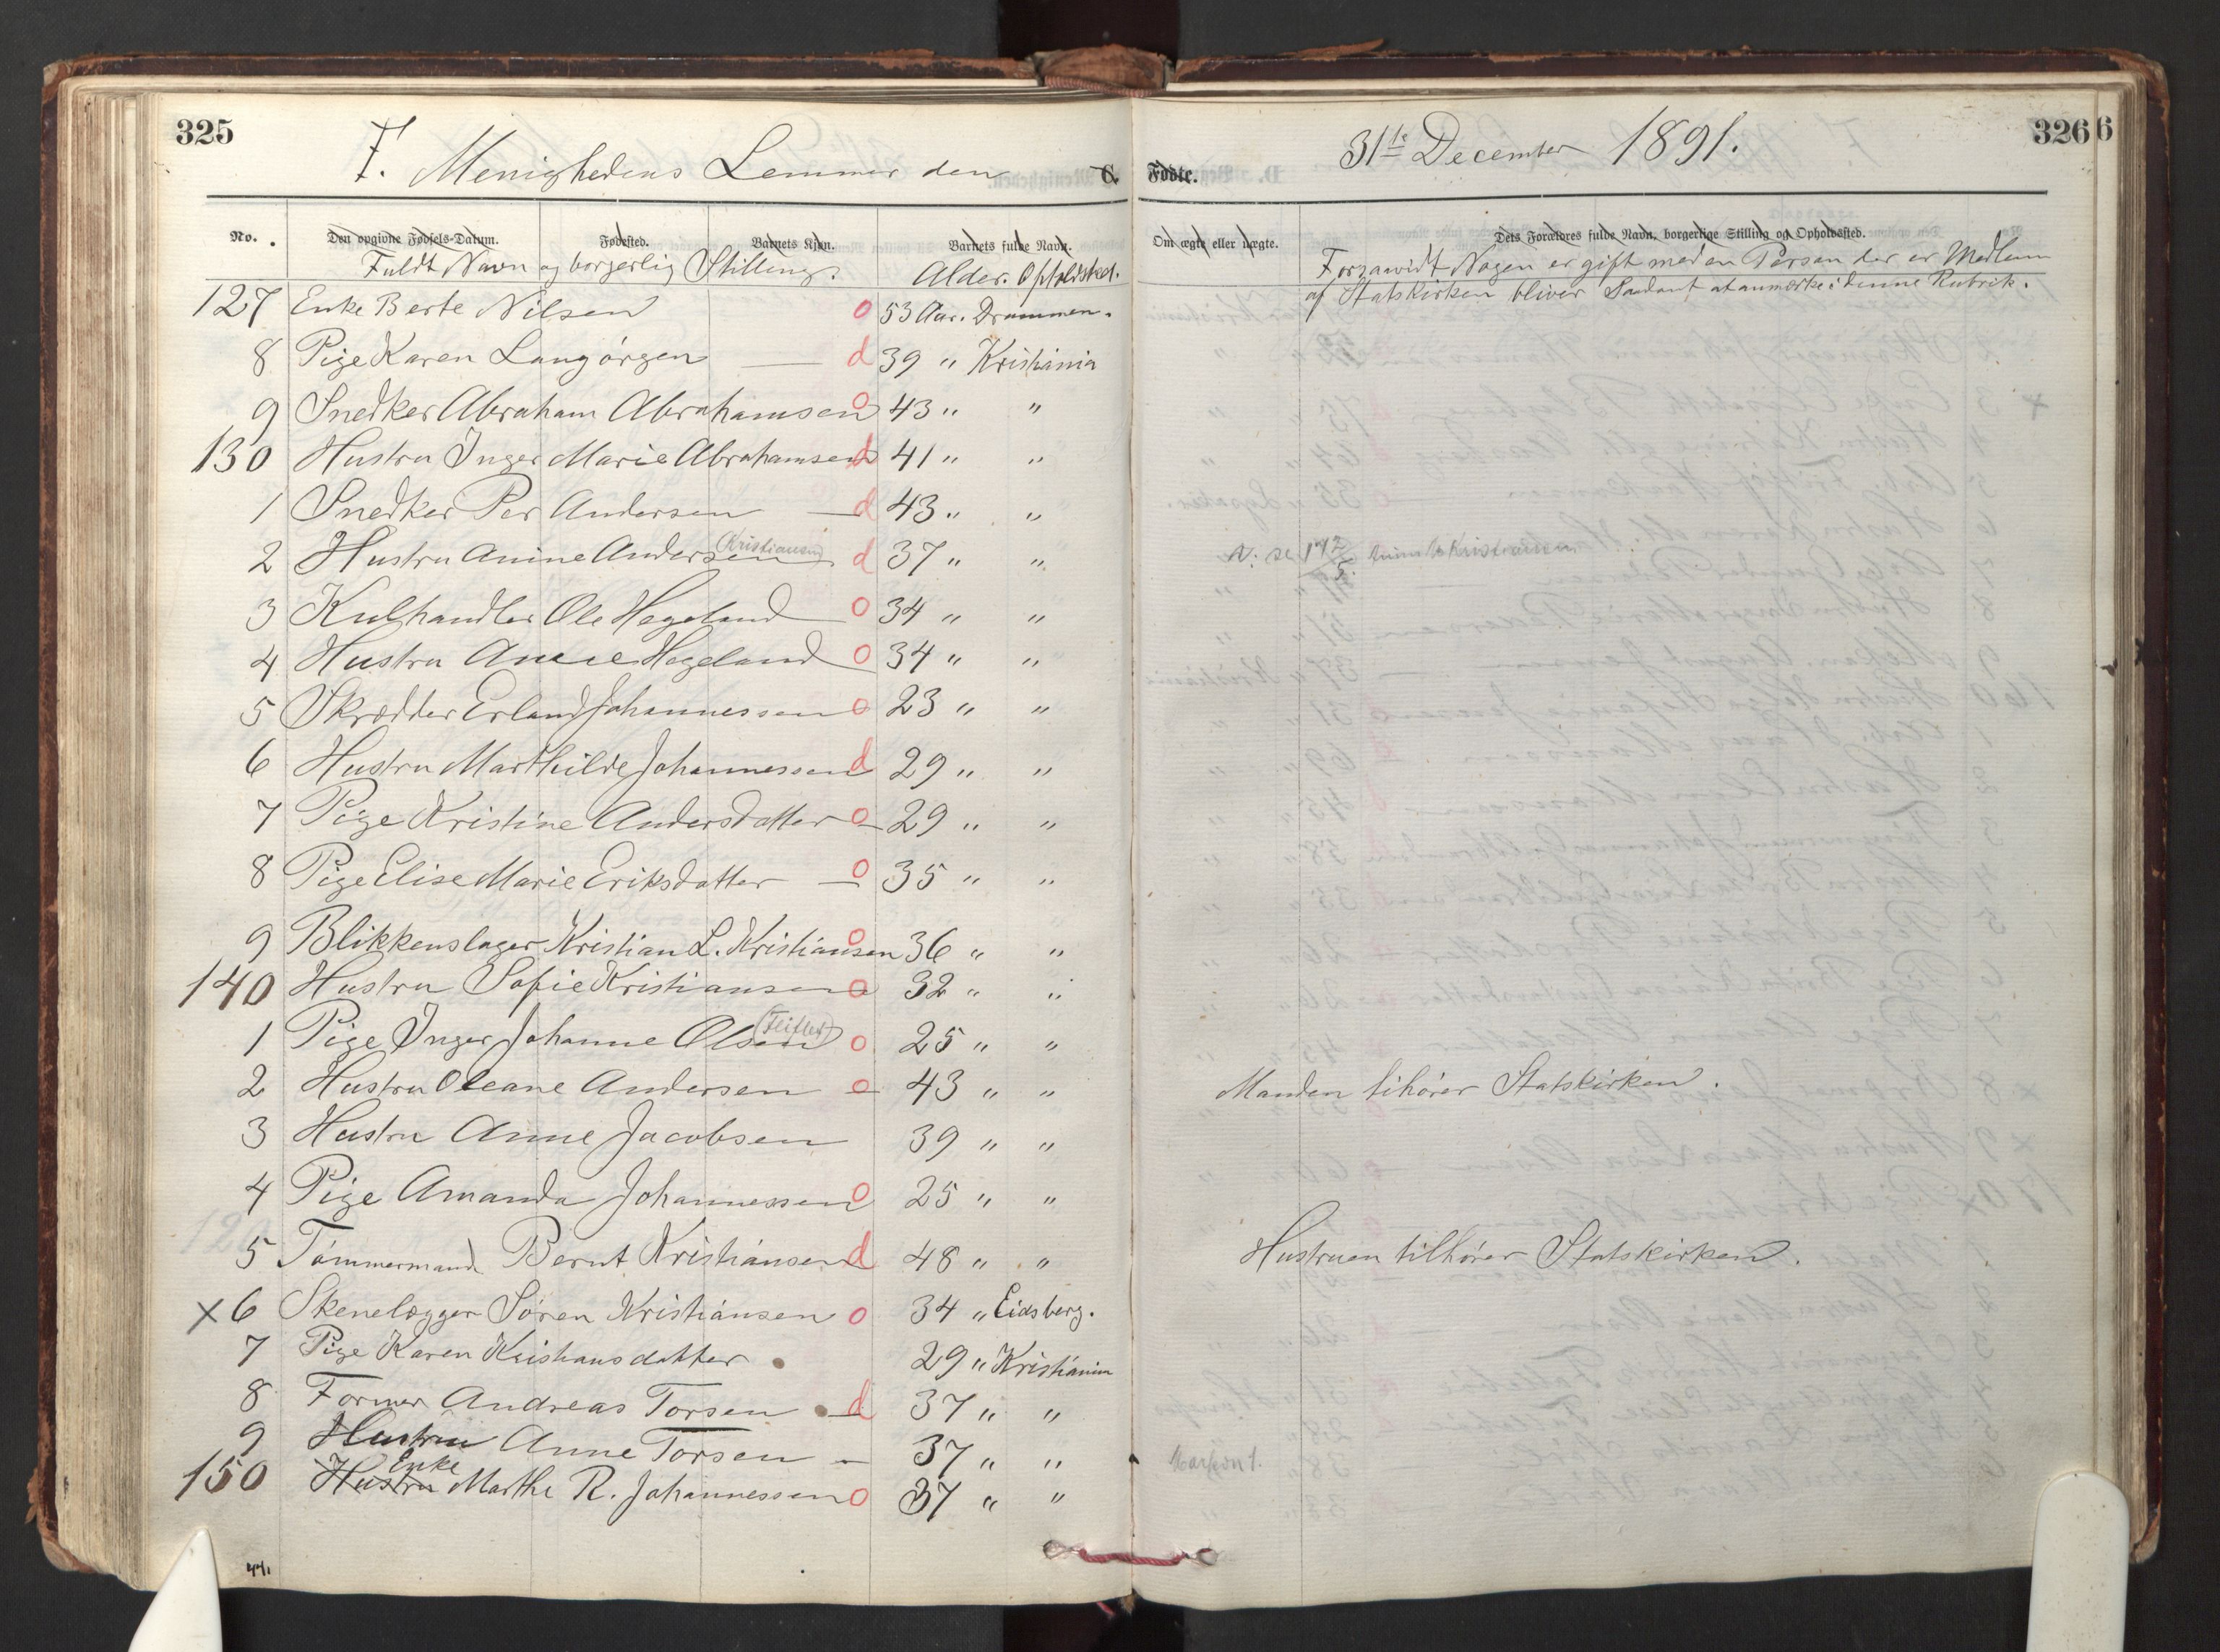 325
F. Menighedens Lemmer den
C.
No.
Den opgivne Fødsels-Datum. Fødested. Barnets Kjøn. Barnets fulde Navn.
Fuldt Navn og borgerlig Stilling. Alder. Opholdsted.
127 Enke Berte Nilsen o 53 Aar. Drammen.
8 Pige Karen Langørgen d 39 " Kristiania
9 Snedker Abraham Abrahamsen o 43 " "
130 Hustru Inger Marie Abrahamsen d 41 " "
1 Snedker Per Andersen d 43 " "
2 Hustru Anine Andersen Kristiansen d 37 " "
3 Kulhandler Ole Hegeland o 34 " "
4 Hustru Anne Hegeland o 34 " "
5 Skrædder Erland Johannessen o 23 " "
6 Hustru Marthilde Johannessen d 29 " "
7 Pige Kristine Andersdatter o 29 " "
8 Pige Elise Marie Eriksdatter o 35 " "
9 Blikkenslager Kristian L. Kristiansen o 36 " "
140 Hustru Sofie Kristiansen o 32 " "
1 Pige Inger Johanne Olsen o 25 " "
2 Hustru Oleane Andersen o 43 " "
3 Hustru Anne Jacobsen 39 " "
4 Pige Amanda Johannessen o 25 " "
5 Tømmermand Bernt Kristiansen d 48 " "
x 6 Skenelægger Søren Kristiansen o 34 " Eidsberg.
7 Pige Karen Kristiansdatter 29 " Kristiania
8 Former Andreas Torsen d 37 " "
9 Hustru Anne Torsen 37 " "
150 Hustru Enke Marthe R. Johannessen o 37 " "
44.
31te December 1891.
3266
Fødte.
Om ægte eller uægte. Dets Forældres fulde Navn, borgerlige Stilling og Opholdssted.
Forsaavidt Nogen er gift med en Person der er Medlem
af Statskirken bliver Saadant at anmærke i denne Rubrik.
Manden tihører Statskirken.
Hustruen tilhører Statskirken.